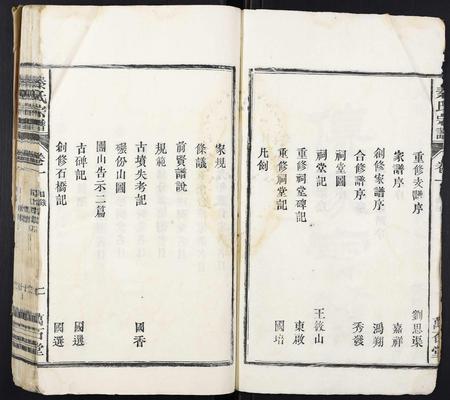 重修支譜序 劉思渠
家譜序 嘉祥
創修家譜序 鴻翔
合修譜序 秀發
祠堂圖
祠堂記 王筱山
重修祠堂碑記 東啟
重修祠堂記 國培
凡例
家規
條議
前賢譜說
規範
古墳失考記 國香
碾份山圖
關山告示二篇
古碑記 國選
創修石橋記 國選
秦氏宗譜 卷一